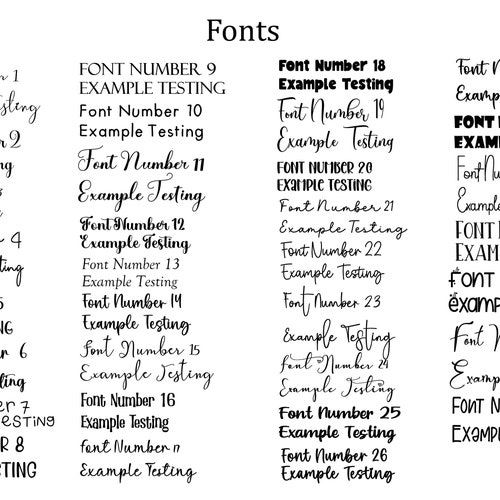 Fonts
1
2
4
6
7
ESTING
8
STING
FONT NUMBER 9
EXAMPLE TESTING
Font Number 10
Example Testing
Font Number 11
Example Testing
Font Number 12
Example Testing
Font Number 13
Example Testing
Font Number 14
Example Testing
Font Number 15
Example Testing
Font Number 16
Example Testing
font Number 17
Example Testing
Font Number 18
Example Testing
Font Number 19
Example Testing
FONT NUMBER 20
EXAMPLE TESTING
Font Number 21
Example Testing
Font Number 22
Example Testing
Font Number 23
Example Testing
Font Number 24
Example Testing
Font Number 25
Example Testing
Font Number 26
Example Testing
Font
FONT
Font
Example
FONT
FONT
Font
Font